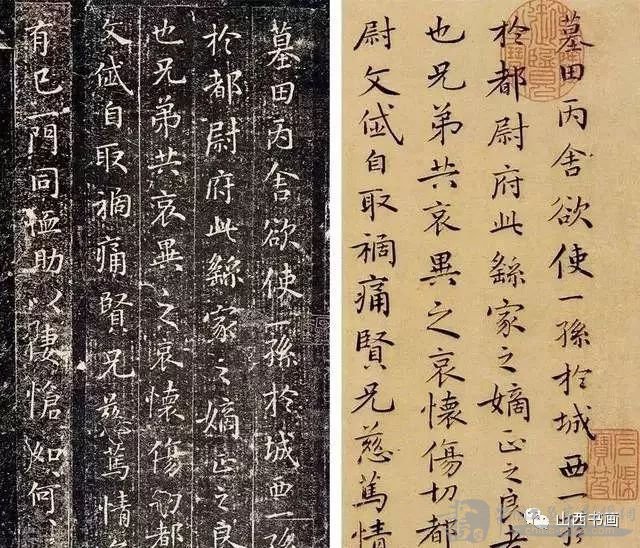 墓田丙舍欲使一孫於城西一孫
於都尉府此繇家之嫡正之良
也兄弟共哀異之哀懷傷切都
文岱自取禍痛賢兄慈篤情
有已一門同恤助以悽愴如何
墓田丙舍欲使一孫於城西一
於都尉府此繇家之嫡正之良者
也兄弟共哀異之哀懷傷切都
尉文岱自取禍痛賢兄慈篤情
山西书画